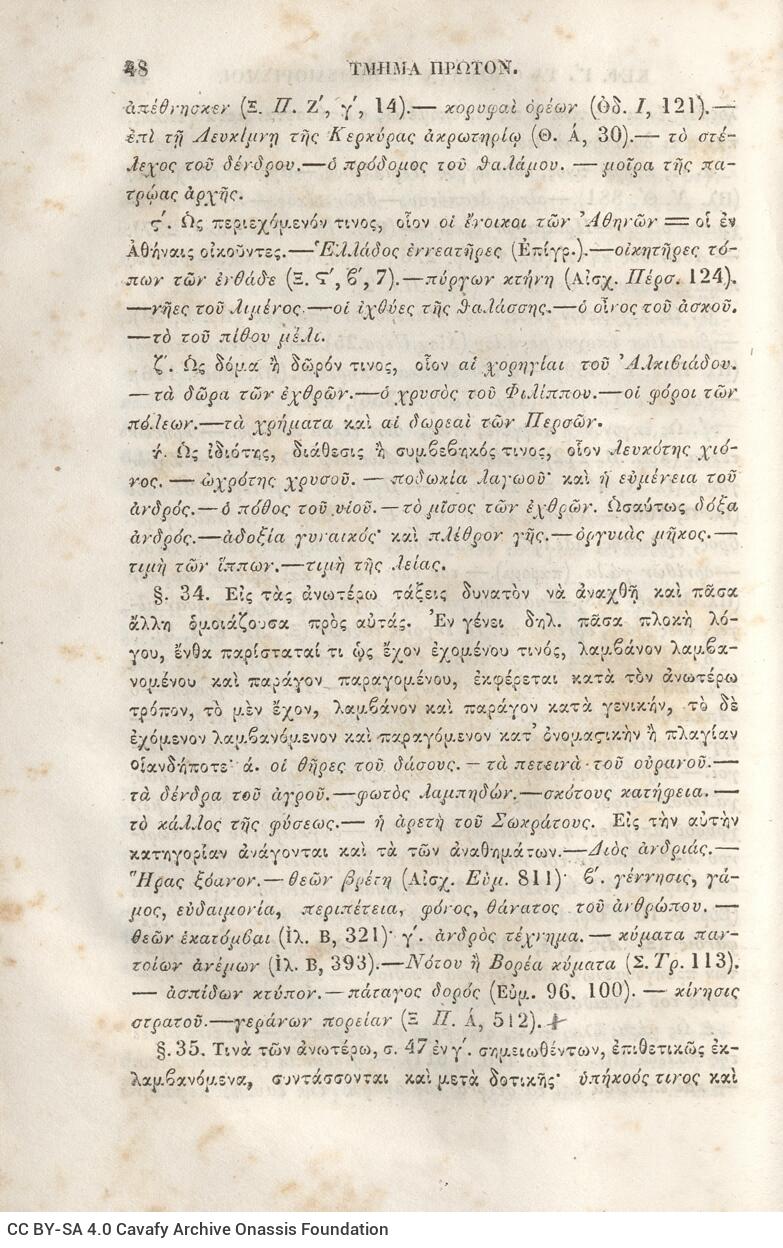 48 ΤΜΗΜΑ ΠΡΩΤΟΝ.
ἀπέθνησκεν (Ξ. Π. Ζ′, γ′, 14).— κορυφαὶ ὀρέων (Ὀδ. Ι, 121).—
ἐπὶ τῇ Λευκίμνῃ τῆς Κερκύρας ἀκρωτηρίῳ (Θ. Ά, 30).— τὸ στέ-
λεχος τοῦ δένδρου.—ὁ πρόδομος τοῦ θαλάμου. — μοῖρα τῆς πα-
τρῴας ἀρχῆς.
ϛ′. Ὡς περιεχόμενόν τινος, οἷον οἱ ἔνοικοι τῶν Ἀθηνῶν = οἱ ἐν
Ἀθήναις οἰκοῦντες.—Ἑλλάδος ἐννεατῆρες (Ἐπίγρ.).—οἰκητῆρες τό-
πων τῶν ἐνθάδε (Ξ. Ϛ′, β′, 7).—πύργων κτήνη (Αἰσχ. Πέρσ. 124).
—νῆες τοῦ λιμένος.—οἱ ἰχθύες τῆς θαλάσσης.—ὁ οἶνος τοῦ ἀσκοῦ.
—τὸ τοῦ πίθου μέλι.
ζ′. Ὡς δόμα ἢ δῶρόν τινος, οἷον αἱ χορηγίαι τοῦ Ἀλκιβιάδου.
— τὰ δῶρα τῶν ἐχθρῶν.—ὁ χρυσὸς τοῦ Φιλίππου.—οἱ φόροι τῶν
πόλεων.—τὰ χρήματα καὶ αἱ δωρεαὶ τῶν Περσῶν.
ή. Ὡς ἰδιότης, διάθεσις ἢ συμβεβηκός τινος, οἷον λευκότης χιό-
νος. — ὠχρότης χρυσοῦ. — ποδωκία λαγωοῦ· καὶ ἡ εὐμένεια τοῦ
ἀνδρός.—ὁ πόθος τοῦ υἱοῦ.—τὸ μῖσος τῶν ἐχθρῶν. Ὡσαύτως δόξα
ἀνδρός.—ἀδοξία γυναικός· καὶ πλέθρον γῆς.—ὀργυιᾶς μῆκος.—
τιμὴ τῶν ἵππων.—τιμὴ τῆς λείας.
§. 34. Εἰς τὰς ἀνωτέρω τάξεις δυνατὸν νὰ ἀναχθῇ καὶ πᾶσα
ἄλλη ὁμοιάζουσα πρὸς αὐτάς. Ἐν γένει δηλ. πᾶσα πλοκὴ λό-
γου, ἔνθα παρίσταταί τι ὡς ἔχον ἐχομένου τινός, λαμβάνον λαμβα-
νομένου καὶ παράγον παραγομένου, ἐκφέρεται κατὰ τὸν ἀνωτέρω
τρόπον, τὸ μὲν ἔχον, λαμβάνον καὶ παράγον κατὰ γενικήν, τὸ δὲ
ἐχόμενον λαμβανόμενον καὶ παραγόμενον κατ' ὀνομαστικὴν ἢ πλαγίαν
οἱανδήποτε· ά. οἱ θῆρες τοῦ δάσους. — τὰ πετεινὰ τοῦ οὐρανοῦ.—
τὰ δένδρα τοῦ ἀγροῦ.—φωτὸς λαμπηδών.—σκότους κατήφεια. —
τὸ κάλλος τῆς φύσεως.— ἡ ἀρετὴ τοῦ Σωκράτους. Εἰς τὴν αὐτὴν
κατηγορίαν ἀνάγονται καὶ τὰ τῶν ἀναθημάτων.—Διὸς ἀνδριάς.—
Ἥρας ξόανον.— θεῶν βρέτη (Αἰσχ. Εὐμ. 811)· β′. γέννησις, γά-
μος, εὐδαιμονία, περιπέτεια, φόνος, θάνατος τοῦ ἀνθρώπου. —
θεῶν ἑκατόμβαι (Ἰλ. Β, 321)· γ′. ἀνδρὸς τέχνημα. — κύματα παν-
τοίων ἀνέμων (Ἰλ. Β, 393).—Νότου ἢ Βορέα κύματα (Σ. Τρ. 113).
— ἀσπίδων κτύπον.—πάταγος δορός (Εὐμ. 96. 100). — κίνησις
στρατοῦ.—γεράνων πορείαν (Ξ Π. Ά, 512).
§. 35. Τινὰ τῶν ἀνωτέρω, σ. 47 ἐν γ′. σημειωθέντων, ἐπιθετικῶς ἐκ-
λαμβανόμενα, συντάσσονται καὶ μετὰ δοτικῆς· ὑπήκοός τινος καὶ
CC BY-SA 4.0 Cavafy Archive Onassis Foundation